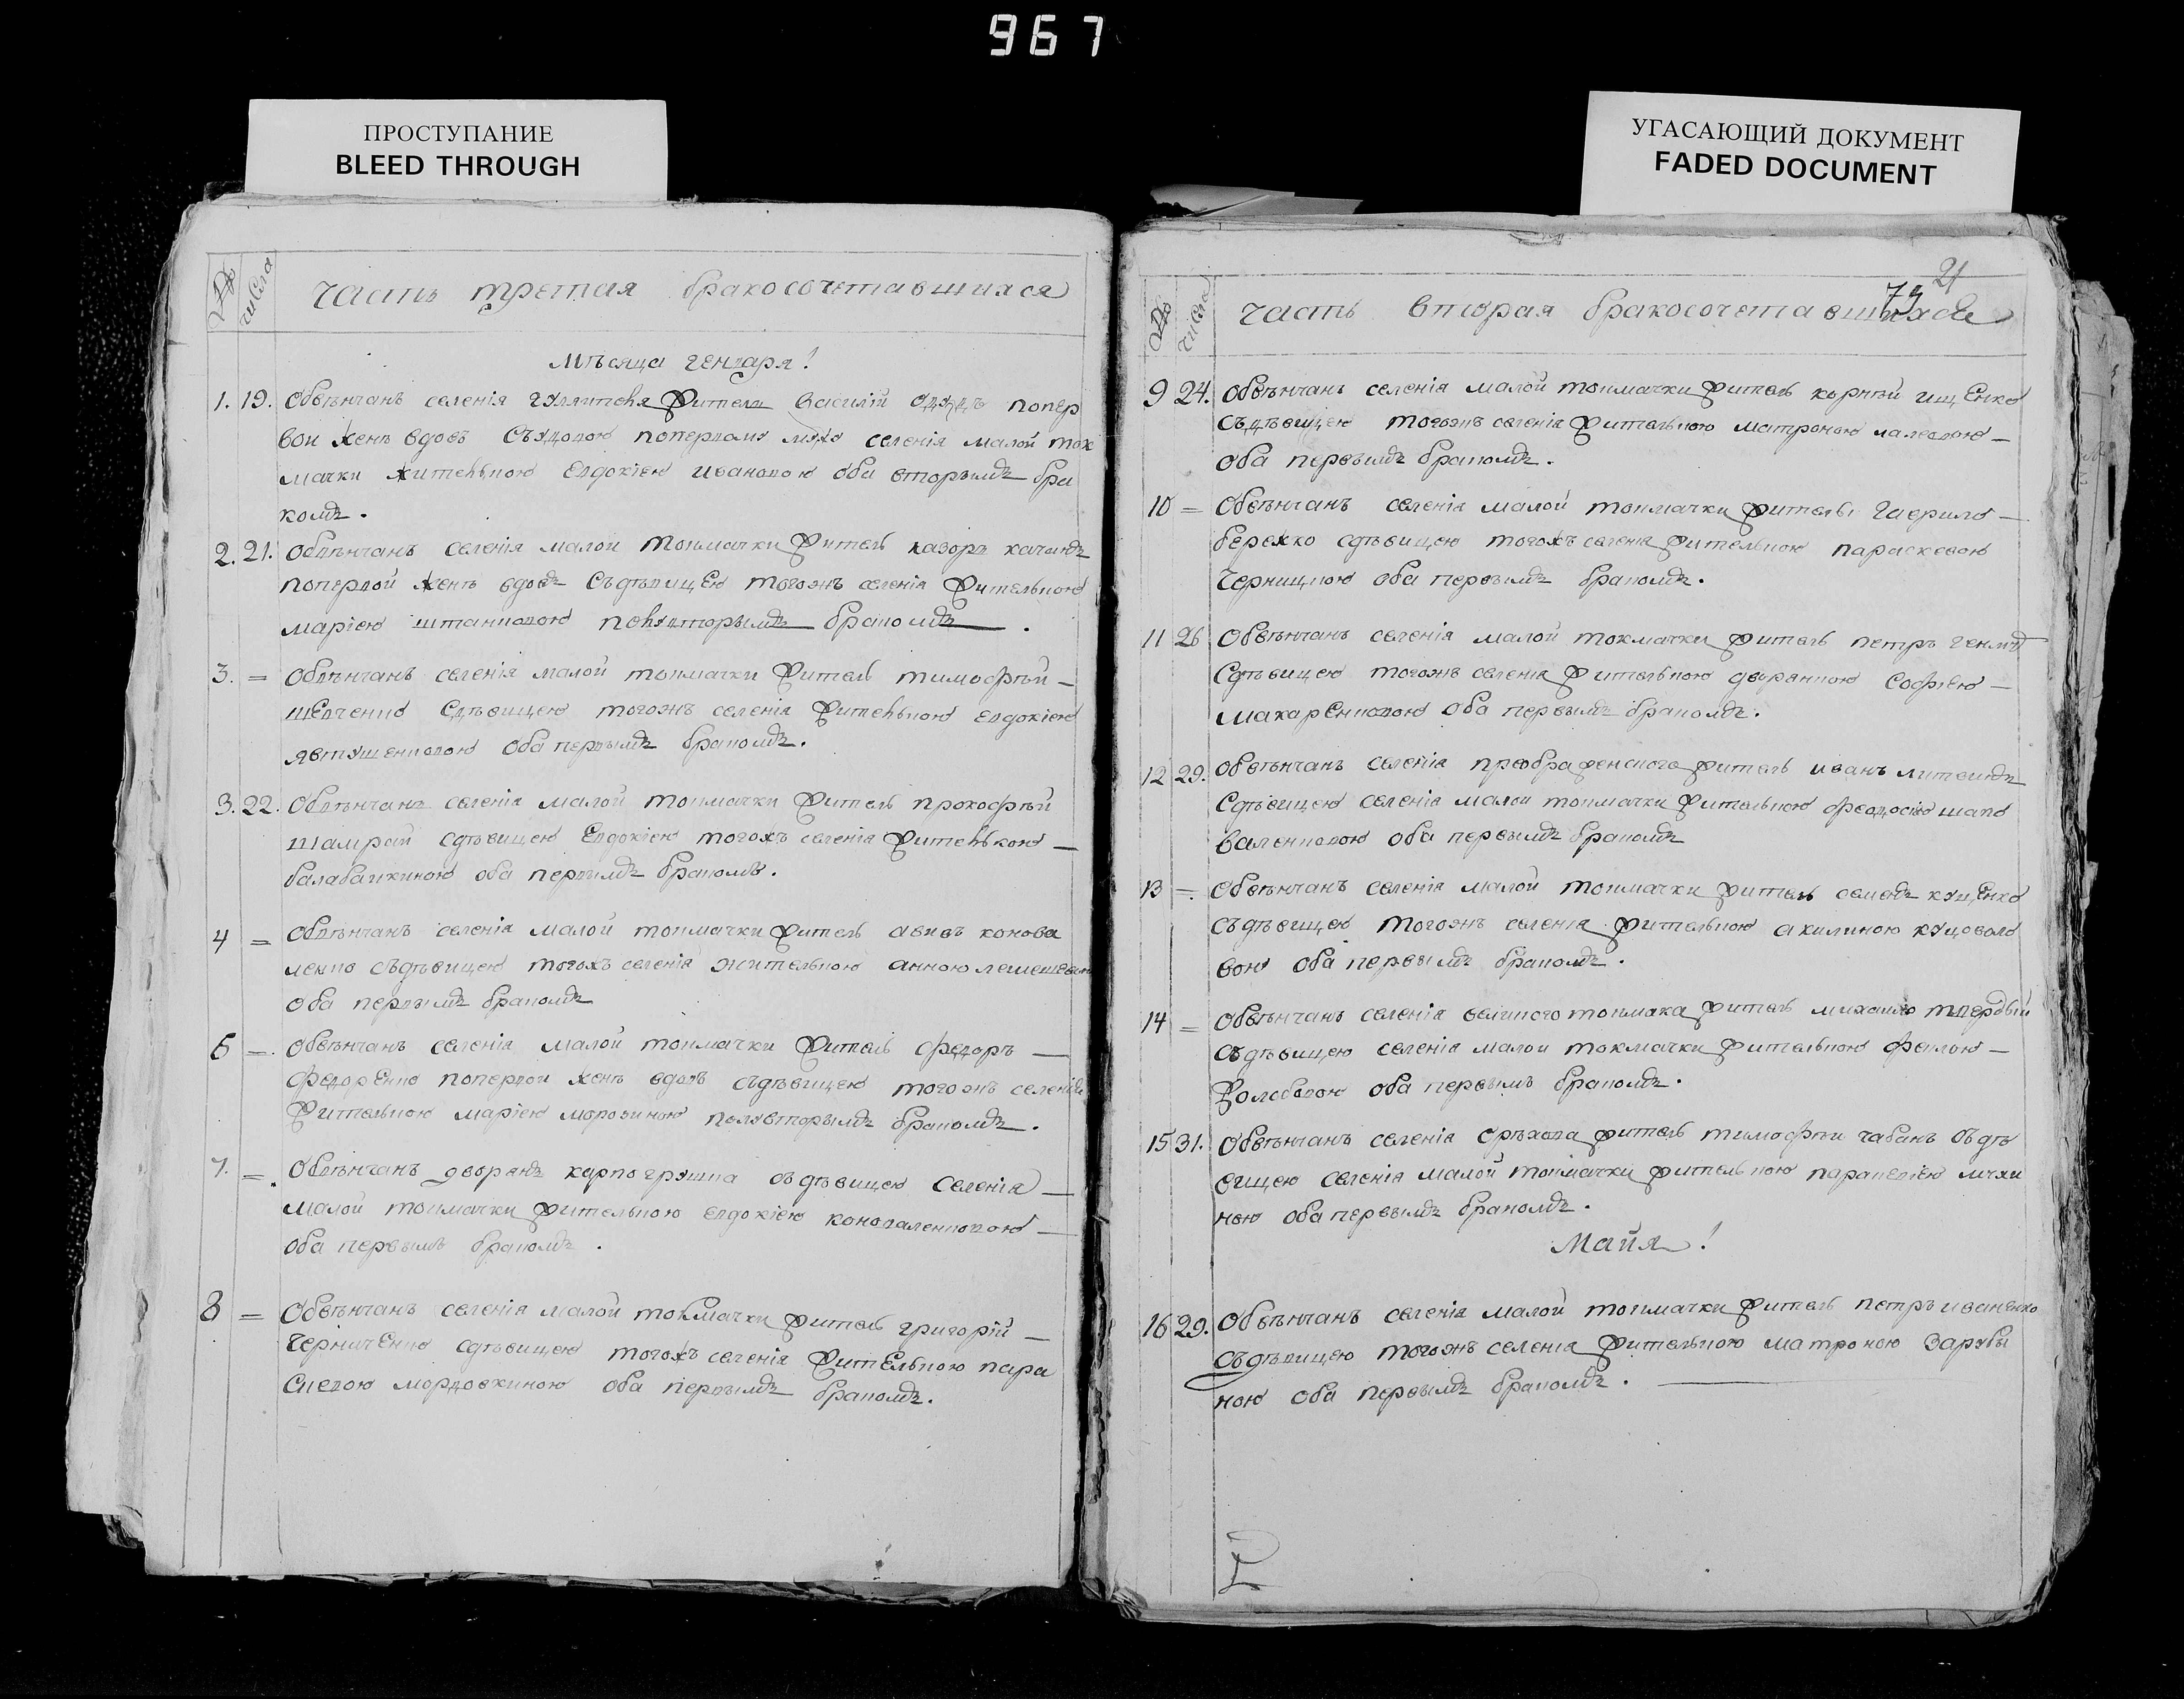 967
ПРОСТУПАНИЕ
BLEED THROUGH
УГАСАЮЩИЙ ДОКУМЕНТ
FADED DOCUMENT
№ числа
часть третая бракосочетавшихся
Мѣсяца генваря!
1. 19. Обвѣнчанъ селенія жители василій попер
вои женѣ вдовъ попервому мужу селенія малой ток
мачки жителькою Евдокіею ивановою оба вторымъ бра
комъ.
2. 21. Обвѣнчанъ селенія малои токмачки житель
попервой женѣ вдовъ съдѣвицею тогожъ селенія жителькою
маріею штанковою полувторымъ бракомъ.
3. = Обвѣнчанъ селенія малой токмачки житель тимофѣй
шевченко сдѣвицею тогожъ селенія жителькою евдокіею
явтушенковою оба первымъ бракомъ.
3. 22. Обвѣнчанъ селенія малой токмачки житель прокофѣй
шамрай сдѣвицею Евдокіею тогожъ селенія жителькою
балабайкиною оба первымъ бракомъ.
4 = Обвѣнчанъ селенія малой токмачки житель авивъ конова
ленко съдѣвицею тогожъ селенія жителькою анною
оба первымъ бракомъ
6 = Обвѣнчанъ селенія малой токмачки житель федоръ
федорЕнко попервои женѣ вдовъ съдѣвицею тогожъ селенія
жителькою маріею морозиною полувторымъ бракомъ.
7. = Обвѣнчанъ дворянъ карпо грушка съдѣвицею селенія
малой токмачки жителькою евдокіею коноваленковою
оба первымъ бракомъ.
8 = Обвѣнчанъ селенія малой токмачки житель григорій
черниченко сдѣвицею тогожъ селенія жителькою пара
скевою мордовкиною оба первымъ бракомъ.
21
79
№ числа
часть вторая бракосочетавшихся
9 24. Обвѣнчанъ селенія малой токмачки житель корнѣй ищЕнко
съдѣвицею тогожъ селенія жителькою матроною
оба первымъ бракомъ.
10 = Обвѣнчанъ селенія малой токмачки житель гаврило
бережко сдѣвицею тогожъ селенія жителькою параскевою
оба первымъ бракомъ.
11 26 Обвѣнчанъ селенія малой токмачки житель петръ
сдѣвицею тогожъ селенія жителькою дворянкою софіею
макарЕнковою оба первымъ бракомъ.
12 29. Обвѣнчанъ селенія преображенского житель иванъ
сдѣвицею селенія малои токмачки жителькою феодосіею шапо
валенковою оба первымъ бракомъ
13 = Обвѣнчанъ селенія малой токмачки житель семенъ куцЕнко
съдѣвицею тогожъ селенія жителькою акилиною
вою оба первымъ бракомъ.
14 = Обвѣнчанъ селенія великого токмака житель михаило твердый
съдѣвицею селенія малои токмачки жителькою феклою
жолобовою оба первымъ бракомъ.
15 31. Обвѣнчанъ селенія орѣхова житель тимофѣи чабанъ съдѣ
вицею селенія малой токмачки жителькою
ною оба первымъ бракомъ.
Майя!
16 29. Обвѣнчанъ селенія малой токмачки житель петръ иваненко
съдѣвицею тогожъ селенія жителькою матроною заруби
ною оба первымъ бракомъ.